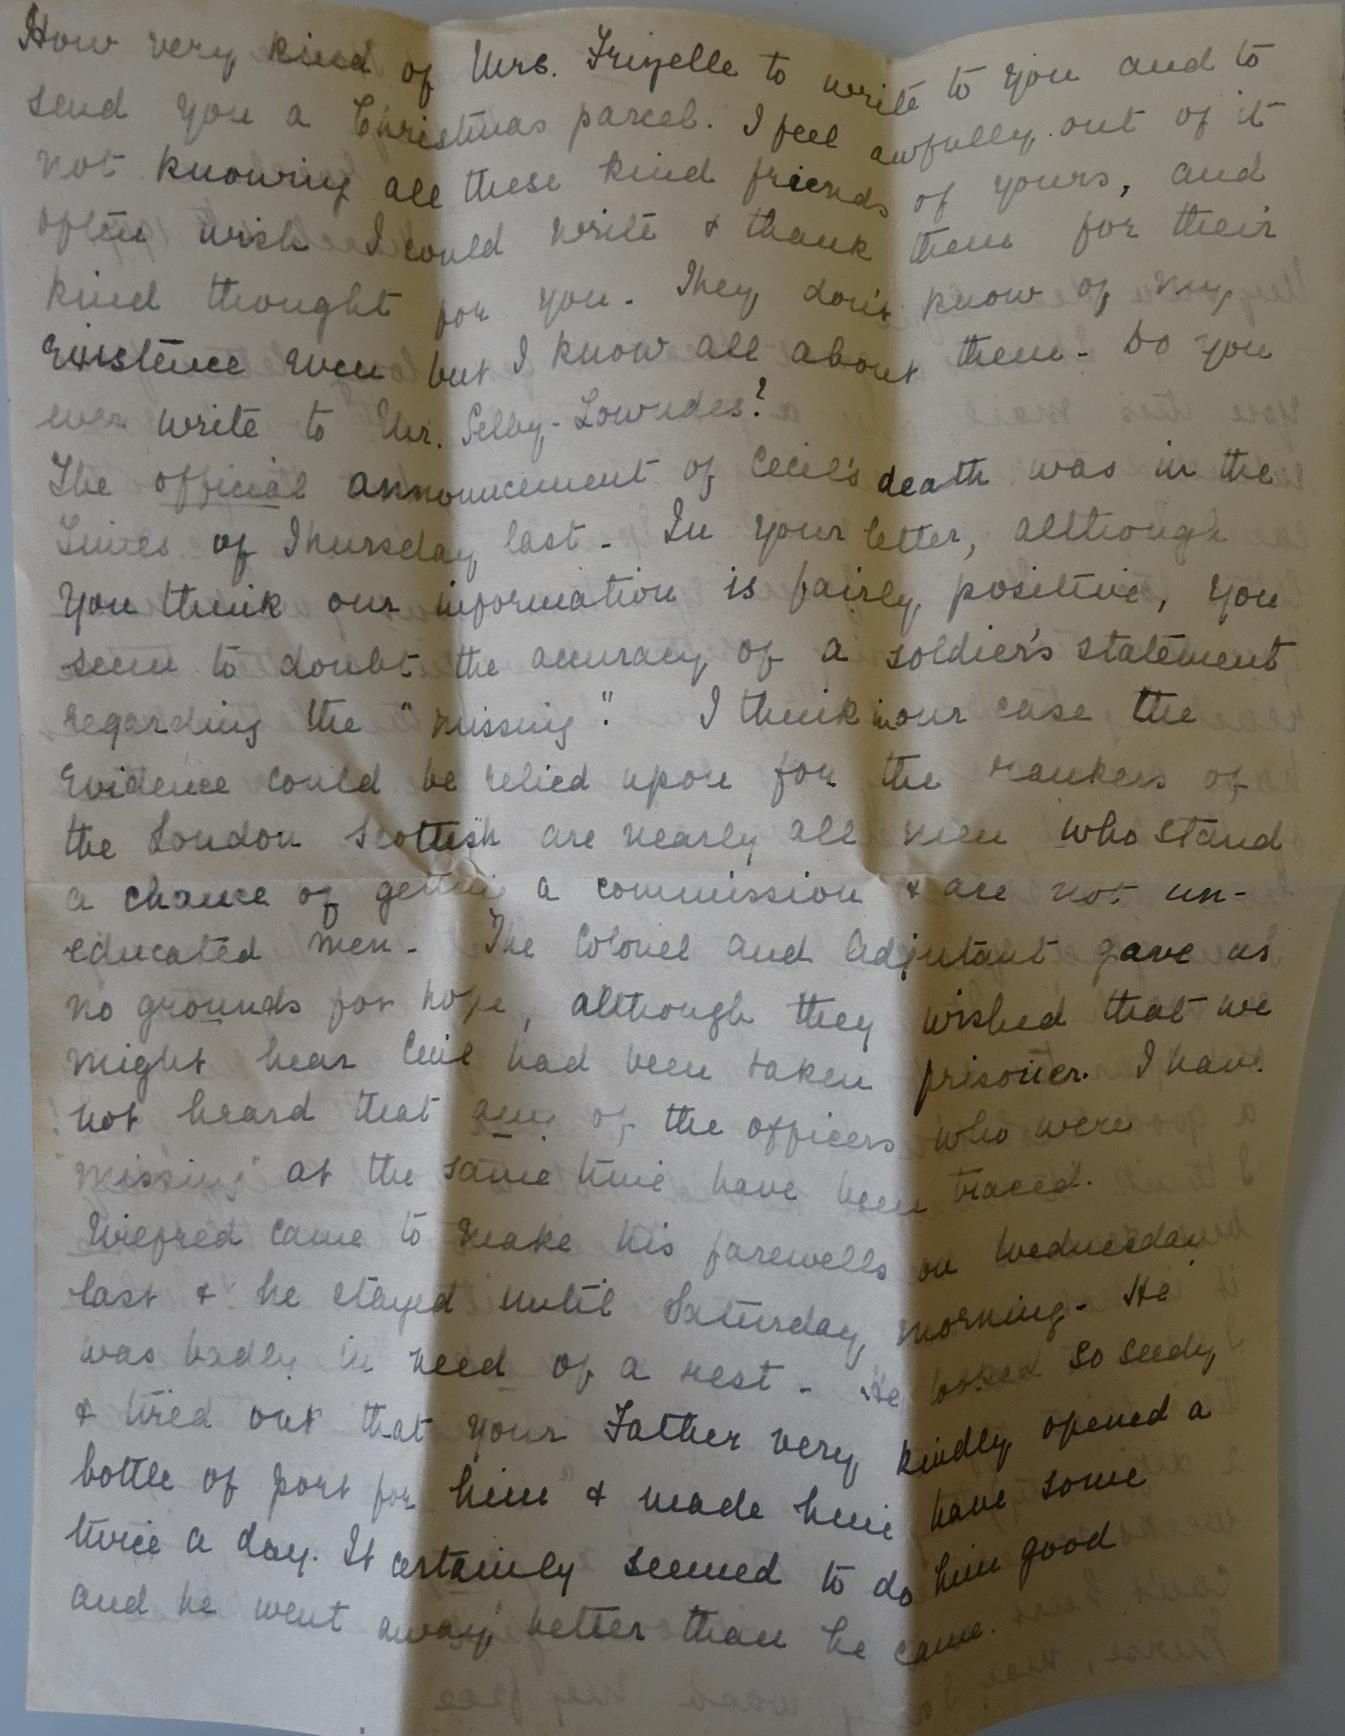 How very kind of Mrs. Frizelle to write to you and to
send you a Christmas parcel. I feel awfully out of it
not knowing all these kind friends of yours, and
often wish I could write & thank them for their
kind thought for you. They don't know of my
existence even but I know all about them. Do you
ever write to Mr. Selby-Lowndes?
The official announcement of Cecil's death was in the
Times of Thursday last. In your letter, although
you think our information is fairly positive, you
seem to doubt the accuracy of a soldier's statement
regarding the "missing". I think in our case the
evidence could be relied upon for the rankers of
the London Scottish are nearly all men who stand
a chance of getting a commission & are not un-
educated men. The Colonel and Adjutant gave us
no grounds for hope, although they wished that we
might hear Cecil had been taken prisoner. I have
not heard that any of the officers who were
"missing" at the same time have been traced.
Wilfred came to make his farewells on Wednesday
last & he stayed until Saturday morning. He
was badly in need of a rest. He looked so seedy
& tired out that your Father very kindly opened a
bottle of port for him & made him have some
twice a day. It certainly seemed to do him good
and he went away better than he came.